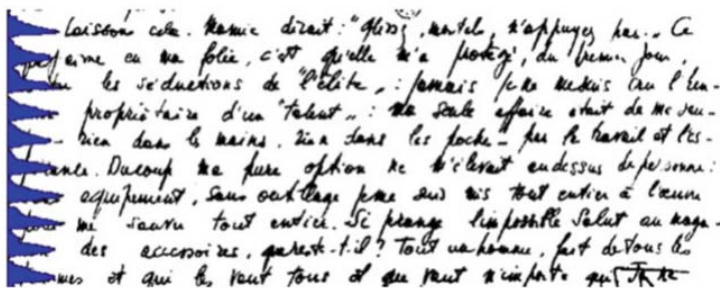 Laissons cela. Mamie dirait : "Glissez, mortels, n'appuyez pas." Ce
j'aime en ma folie, c'est qu'elle m'a protégé, du premier jour,
les séductions de "l'élite" : jamais je ne me suis cru l'heu-
propriétaire d'un "talent" : ma seule affaire était de me sau-
- rien dans les mains, rien dans les poches - par le travail et l'es-
Ducoup ma pure option ne m'élevait au dessus de personne :
équipement, sans outillage je me suis mis tout entier à l'œuvre
me sauver tout entier. Si je range l'impossible Salut au maga-
des accessoires, que reste-t-il ? Tout un homme, fait de tous les
mes et qui les vaut tous et que vaut n'importe qui